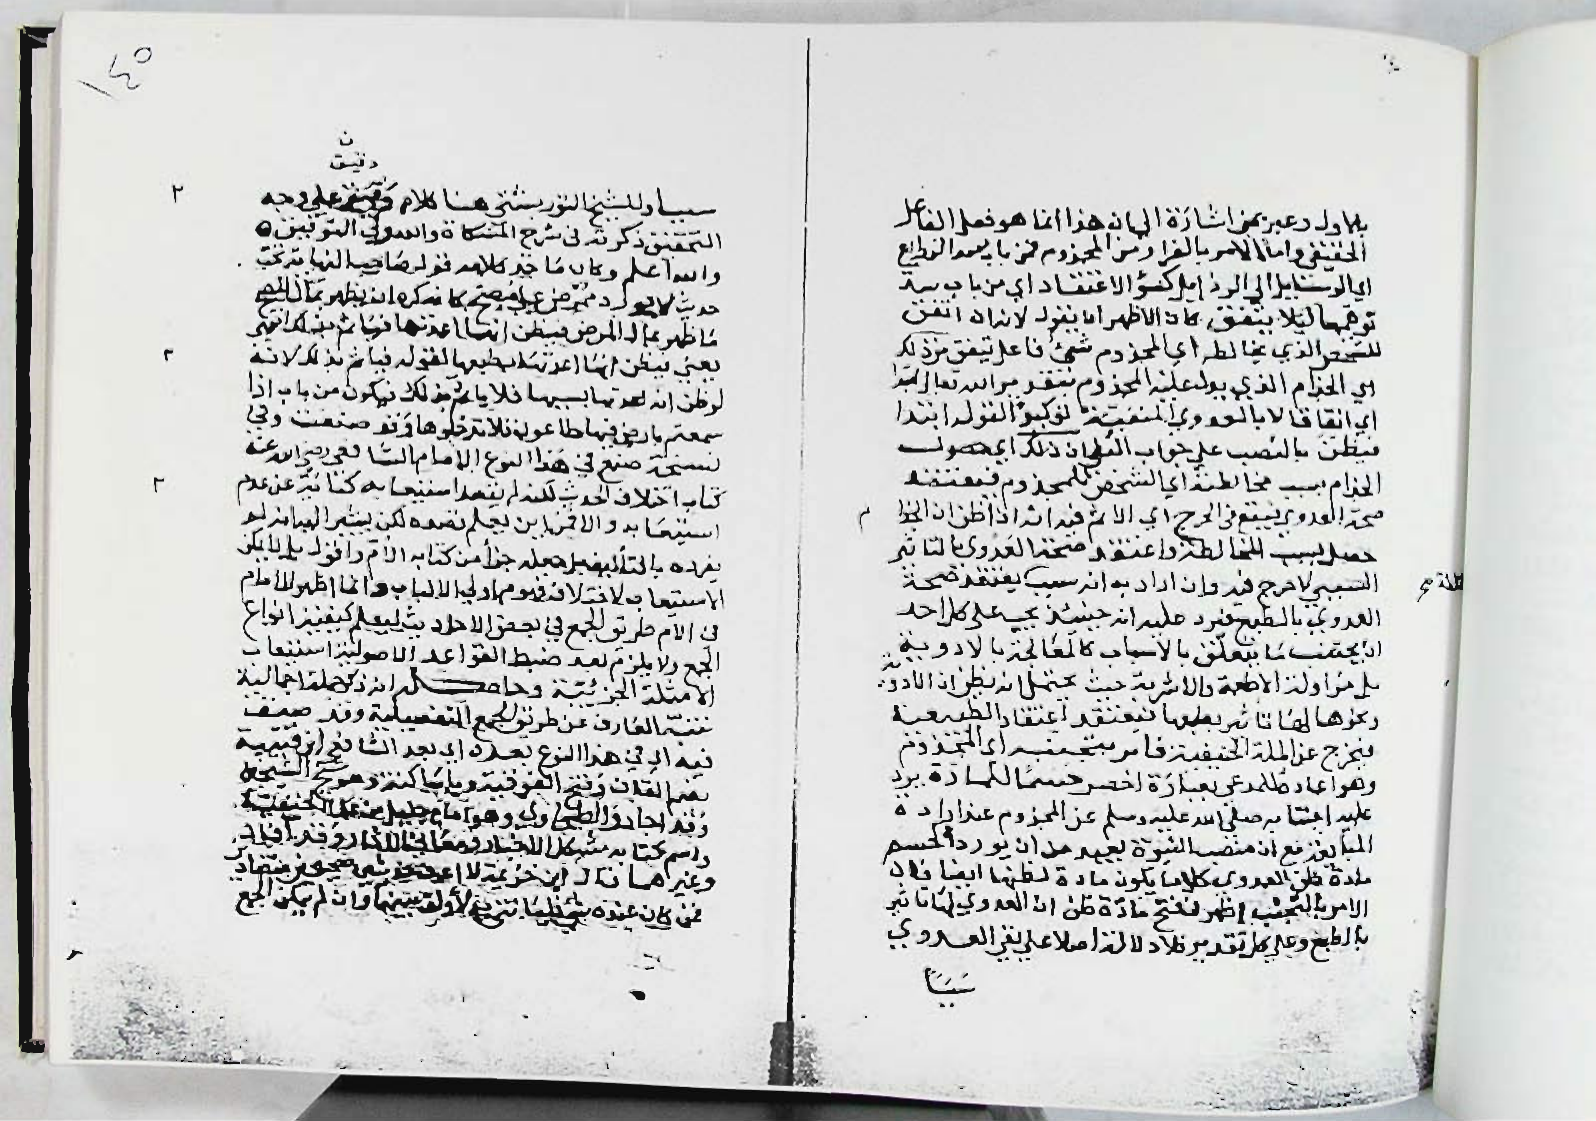 بل اول وعبر بمن اشارة الى ان هذا انما هو فعل الفاعل
الحقيقي واما الامر بالفرار من المجذوم فمن باب سد الذرايع
اي الوسايل الى الرذايل كسوء الاعتقاد اي من باب سد
توهمها ليلا يتفق كان الاظهر ان يقول لانه ان اتفق
للشخص الذي يخالطه اي المجذوم شئ فاعل يتفق من ذلك
اي الجذام الذي يدل عليه المجذوم بتقدير الله تعالى ابتداء
اي اتفاقا لا بالعدوي المنفية لتوكيد القول ابتدا
فيظن بالنصب على جواب النفي ان ذلك اي حصول
الجذام بسبب مخالطته اي الشخص للمجذوم فيعتقد
صحة العدوي فيقع في الحرج اي الاثم فيه انه اذا ظن ان الجذام
حصل بسبب المخالطة واعتقد صحة العدوي بالتاثير
السببي لا حرج فيه وان اراد به انه بسبب يعتقد صحة
العدوي بالطبع فيرد عليه انه حينئذ يجب على كل احد
ان يجتنب ما يتعلق بالاسباب كالمعالجة بالادوية
بل مزاولة الاطعمة والاشربة حيث يحتمل ان يظن ان الادوية
ونحوها لها تاثير بطبعها فيعتقد اعتقاد الطبيعية
فيخرج عن الملة الحنيفية فامر بتجنبه اي المجذوم
وهو اعادة للمدعي بعبارة اخصر حسما للمادة يرد
عليه اجتنابه صلي الله عليه وسلم عن المجذوم عند ارادة
المبايعة مع ان منصب النبوة بعيد من ان يورد لحسم
مادة ظن العدوي كلاما يكون مادة لظنها ايضا فان
الامر بالتجنب اظهر في فتح مادة ظن ان العدوي لها تاثير
بالطبع وعلي كل تقدير فلا دلالة اصلا علي نفي العدوي
سببا
١٤٥
دقيق
سببا وللشيخ التوربشتي هنا كلام دقيق علي وجه
التحقيق ذكرته في شرح المشكاة والله ولي التوفيق
والله اعلم وكان ماخذ كلامه قول صاحب النهاية تحت
حديث لا يورد ممرض علي مصح كانه كره ان يظهر بمال المصح
ما ظهر بمال الممرض فيظن انها اعدتها فياثم بذلك انتهي
يعني فيظن انها اعدتها بطبعها لقوله فياثم بذلك لانه
لو ظن انه اعدتها بسببها فلا ياثم بذلك فيكون من باب اذا
سمعتم بارض فيها طاعون فلا تدخلوها وقد صنف وفي
نسخة صنع في هذا النوع الامام الشافعي رضي الله عنه
كتاب اختلاف الحديث لكنه لم يقصد استيعابه كناية عن عدم
استيعابه والا فمن اين يعلم قصده لكن يشير اليه انه لم
يفرده بالتأليف بل جعله جزأ من كتابه الأم واقول بل لا يمكن
الاستيعاب لاختلاف فهوم اولي الالباب وانما اظهر الامام
في الأم طريق الجمع في بعض الاحاديث ليعلم كيفية انواع
الجمع ولا يلزم بعد ضبط القواعد الاصولية استيعاب
الامثلة الجزئية وحاصله انه ذكر جملة اجمالية
تنبه العارف عن طريق الجمع التفصيلية وقد صنف
فيه اي في هذا النوع بعده اي بعد الشافعي ابن قتيبة
بضم القاف وفتح الفوقية وياء ساكنة وهو شيخ
وقد اجاد والطحاوي وهو امام جليل من علماء الحنفية
واسم كتابه مشكل الاثار ومعاني الاثار وقد افاد
وغيرهما قال ابن خزيمة لا اعرف حديثين صحيحين متضادين
فمن كان عنده شئ فلياتني به لاؤلف بينهما وان لم يمكن الجمع